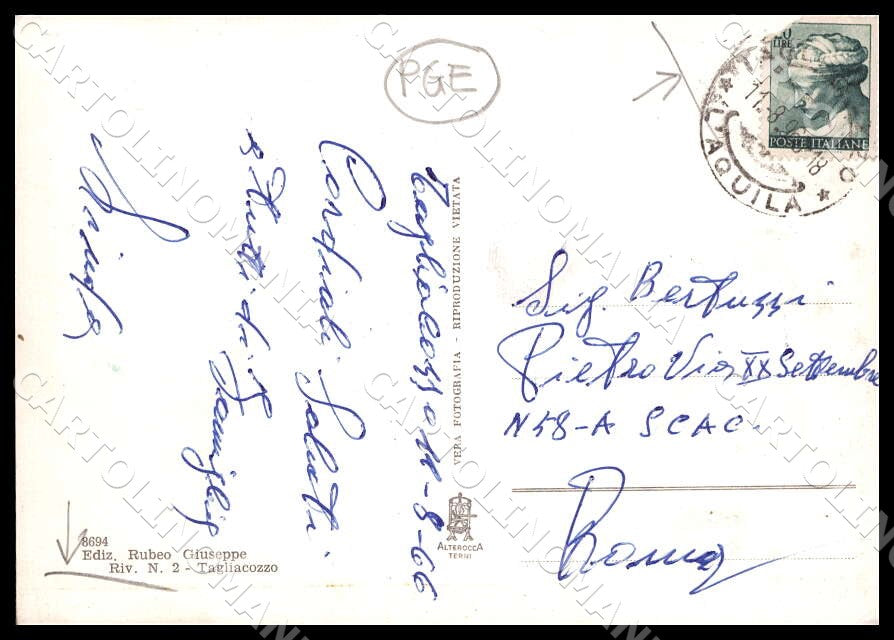 PGE
Tagliacozzo 11-8-66
Cordiali Saluti
a tutti di Famiglia
VERA FOTOGRAFIA - RIPRODUZIONE VIETATA
8694
Ediz. Rubeo Giuseppe
Riv. N. 2 - Tagliacozzo
ALTEROCCA
TERNI
LIRE
POSTE ITALIANE
L'AQUILA
Sig. Bertuzzi
Pietro Via XX Settembre
N 58-A SCAC.
Roma
CARTOLINOMANIA